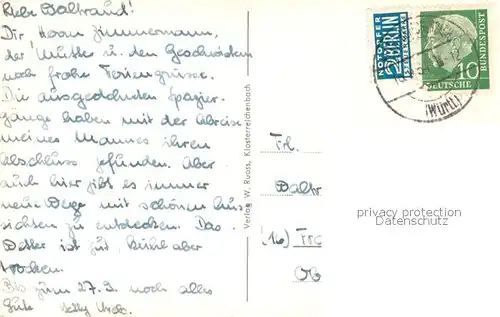 Liebe Baltraud!
Dir Herrn Zimmermann,
der Mutter u. den Geschwistern
noch frohe Feriengrüsse.
Die ausgedehnten Spazier-
gänge haben mit der Abreise
meines Mannes ihren
Abschluss gefunden. Aber
auch hier gibt es immer
neue Wege mit schönen Aus-
sichten zu entdecken. Das
Wetter ist gut, kühl aber
trocken.
Bis zum 27. 9. noch alles
Gute
Verlag W. Ruoss, Klosterreichenbach
NOTOPFER
2 BERLIN
STEUERMARKE
10
DEUTSCHE
BUNDESPOST
(Württ)
Frl.
Baltr
privacy protection
Datenschutz
(16)
Ob